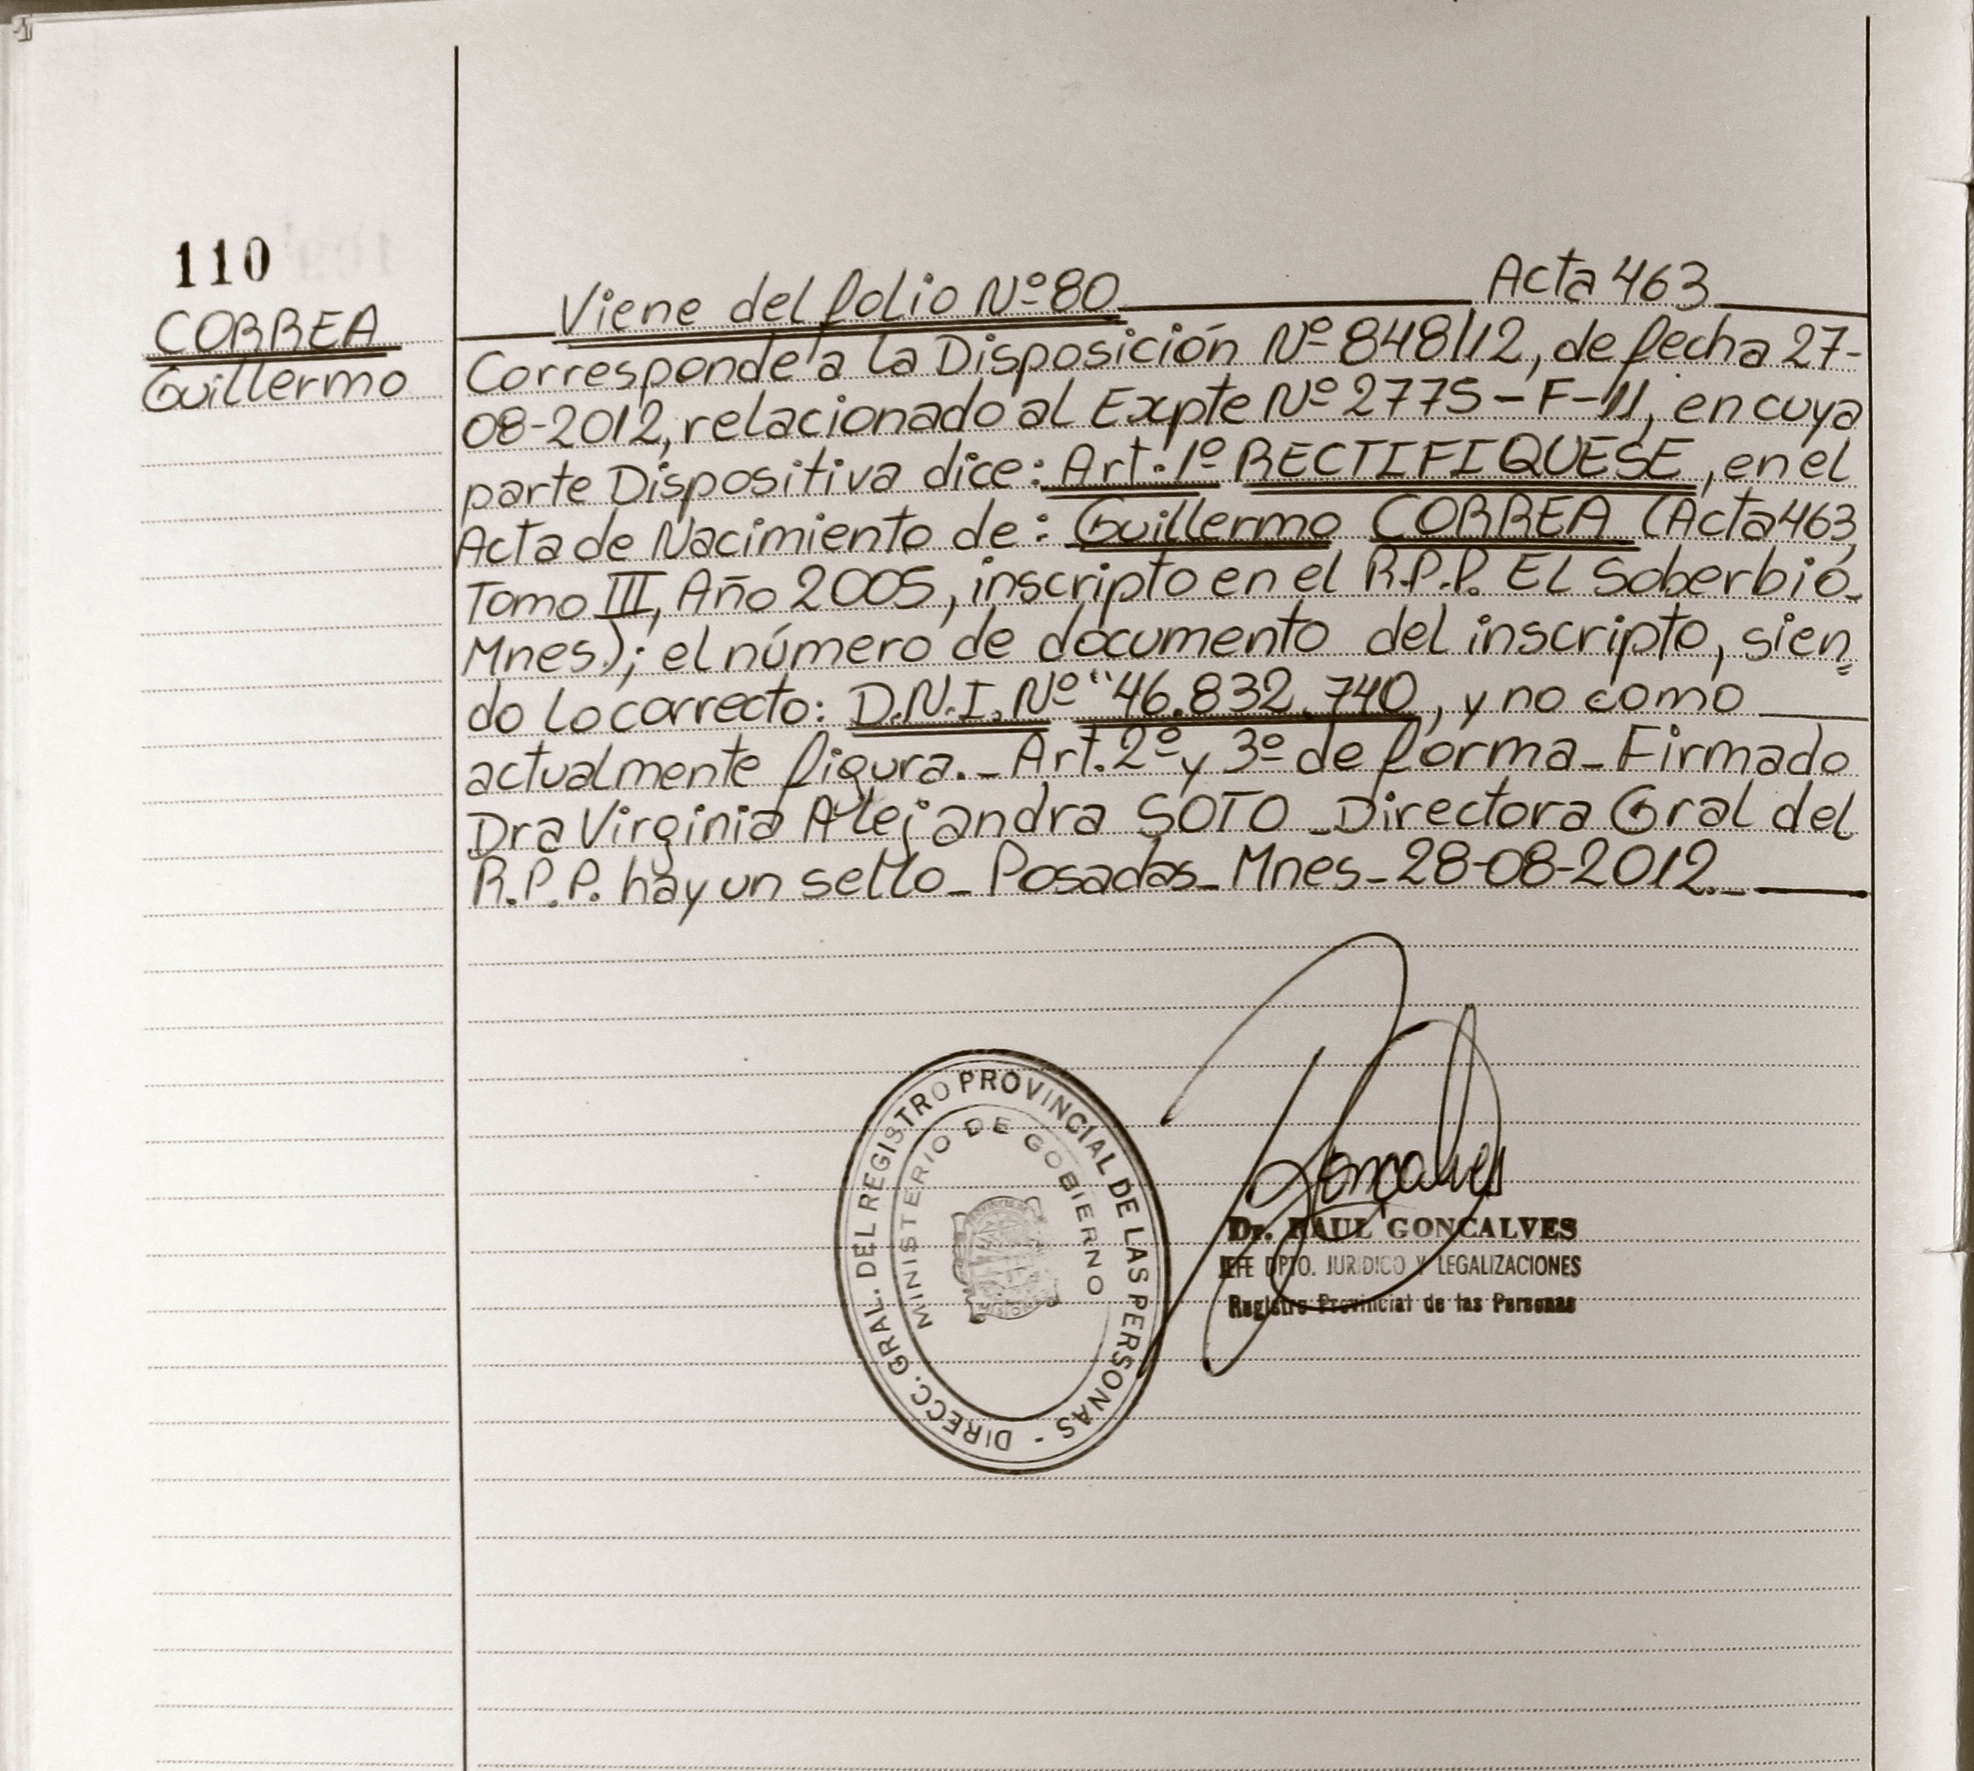 110
CORREA
Guillermo
Viene del folio Nº 80 Acta 463
Corresponde a la Disposición Nº 848/12, de fecha 27-
08-2012, relacionado al Expte Nº 2775-F-11, en cuya
parte Dispositiva dice: Art. 1º RECTIFIQUESE, en el
Acta de Nacimiento de: Guillermo CORREA (Acta 463,
Tomo III, Año 2005, inscripto en el R.P.P. El Soberbio-
Mnes.); el número de documento del inscripto, sien
do lo correcto: D.N.I. Nº "46.832.740, y no como
actualmente figura._ Art. 2º y 3º de forma_ Firmado
Dra Virginia Alejandra SOTO _Directora Gral del
R.P.P. hay un sello_ Posadas_ Mnes_ 28-08-2012._
DIRECC. GRAL. DEL REGISTRO PROVINCIAL DE LAS PERSONAS -
MINISTERIO DE GOBIERNO
Goncalves
Dr. RAUL GONCALVES
JEFE DPTO. JURIDICO Y LEGALIZACIONES
Registro Provincial de las Personas